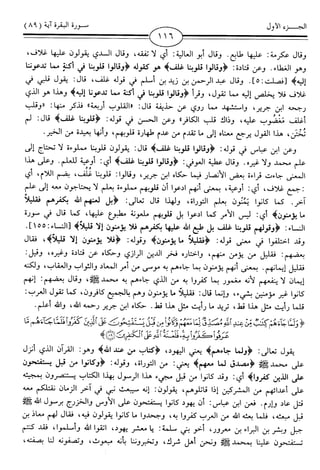 الجزء الأول
١١٦
سورة البقرة آية (٨٩)
وقال عكرمة: عليها طابع. وقال أبو العالية: أي لا تفقه، وقال السدي يقولون عليها غلاف،
وهو الغطاء. وعن قتادة: ﴿وقالوا قلوبنا غلف﴾ هو كقوله ﴿وقالوا قلوبنا في أكنة مما تدعوننا
إليه﴾ [فصلت: ٥]. وقال عبد الرحمن بن زيد بن أسلم في قوله غلف، قال: يقول قلبي في
غلاف فلا يخلص إليه مما تقول، وقرأ ﴿وقالوا قلوبنا في أكنة مما تدعونا إليه﴾ وهذا هو الذي
رجحه ابن جرير، واستشهد مما روي عن حذيفة قال: «القلوب أربعة» فذكر منها: «وقلب
أغلف مغضوب عليه، وذاك قلب الكافر» وعن الحسن في قوله: ﴿قلوبنا غلف﴾ قال: لم
تختن، هذا القول يرجع معناه إلى ما تقدم من عدم طهارة قلوبهم، وأنها بعيدة من الخير.
وعن ابن عباس في قوله: ﴿وقالوا قلوبنا غلف﴾ قال: يقولون قلوبنا مملوءة لا تحتاج إلى
علم محمد ولا غيره. وقال عطية العوفي: ﴿وقالوا قلوبنا غلف﴾ أي: أوعية للعلم. وعلى هذا
المعنى جاءت قراءة بعض الأنصار فيما حكاه ابن جرير، وقالوا: قلوبنا غلف، بضم اللام، أي
:جمع غلاف، أي: أوعية، بمعنى أنهم ادعوا أن قلوبهم مملوءة بعلم لا يحتاجون معه إلى علم
آخر. كما كانوا يمنون بعلم التوراة، ولهذا قال تعالى: ﴿بل لعنهم الله بكفرهم فقليلاً
ما يؤمنون﴾ أي: ليس الأمر كما ادعوا بل قلوبهم ملعونة مطبوع عليها، كما قال في سورة
النساء: ﴿وقولهم قلوبنا غلف بل طبع الله عليها بكفرهم فلا يؤمنون إلا قليلاً﴾ [النساء: ١٥٥].
وقد اختلفوا في معنى قوله: ﴿فقليلاً ما يؤمنون﴾ وقوله: ﴿فلا يؤمنون إلا قليلاً﴾، فقال
بعضهم: فقليل من يؤمن منهم، واختاره فخر الدين الرازي وحكاه عن قتادة وغيره، وقيل:
فقليل إيمانهم. بمعنى أنهم يؤمنون بما جاءهم به موسى من أمر المعاد والثواب والعقاب، ولكنه
إيمان لا ينفعهم لأنه مغمور بما كفروا به من الذي جاءهم به محمد ﷺ، وقال بعضهم: إنهم
كانوا غير مؤمنين بشيء، وإنما قال: فقليلاً ما يؤمنون وهم بالجميع كافرون، كما تقول العرب:
قلما رأيت مثل هذا قط، تريد ما رأيت مثل هذا قط. حكاه ابن جرير رحمه الله، والله أعلم.
﴿وَلَمَّا جَاءَهُمْ كِتَابٌ مِنْ عِنْدِ اللَّهِ مُصَدِّقٌ لِمَا مَعَهُمْ وَكَانُوا مِنْ قَبْلُ يَسْتَفْتِحُونَ عَلَى الَّذِينَ كَفَرُوا فَلَمَّا جَاءَهُمْ مَا
عَرَفُوا كَفَرُوا بِهِ فَلَعْنَةُ اللَّهِ عَلَى الْكَافِرِينَ﴾
يقول تعالى: ﴿ولما جاءهم﴾ يعني اليهود، ﴿كتاب من عند الله﴾ وهو: القرآن الذي أنزل
على محمد ﷺ ﴿مصدق لما معهم﴾ يعني: من التوراة، وقوله: ﴿وكانوا من قبل يستفتحون
على الذين كفروا﴾ أي: وقد كانوا من قبل مجيء هذا الرسول بهذا الكتاب يستنصرون بمجيئه
على أعدائهم من المشركين إذا قاتلوهم، يقولون: إنه سيبعث نبي في آخر الزمان نقتلكم معه
قتل عاد وإرم. فعن ابن عباس: أن يهود كانوا يستفتحون على الأوس والخزرج برسول الله ﷺ
قبل مبعثه، فلما بعثه الله من العرب كفروا به، وجحدوا ما كانوا يقولون فيه، فقال لهم معاذ بن
جبل وبشر بن البراء بن معرور، أخو بني سلمة: يا معشر يهود، اتقوا الله وأسلموا، فقد كنتم
تستفتحون علينا بمحمد ﷺ ونحن أهل شرك، وتخبروننا بأنه مبعوث، وتصفونه لنا بصفته،